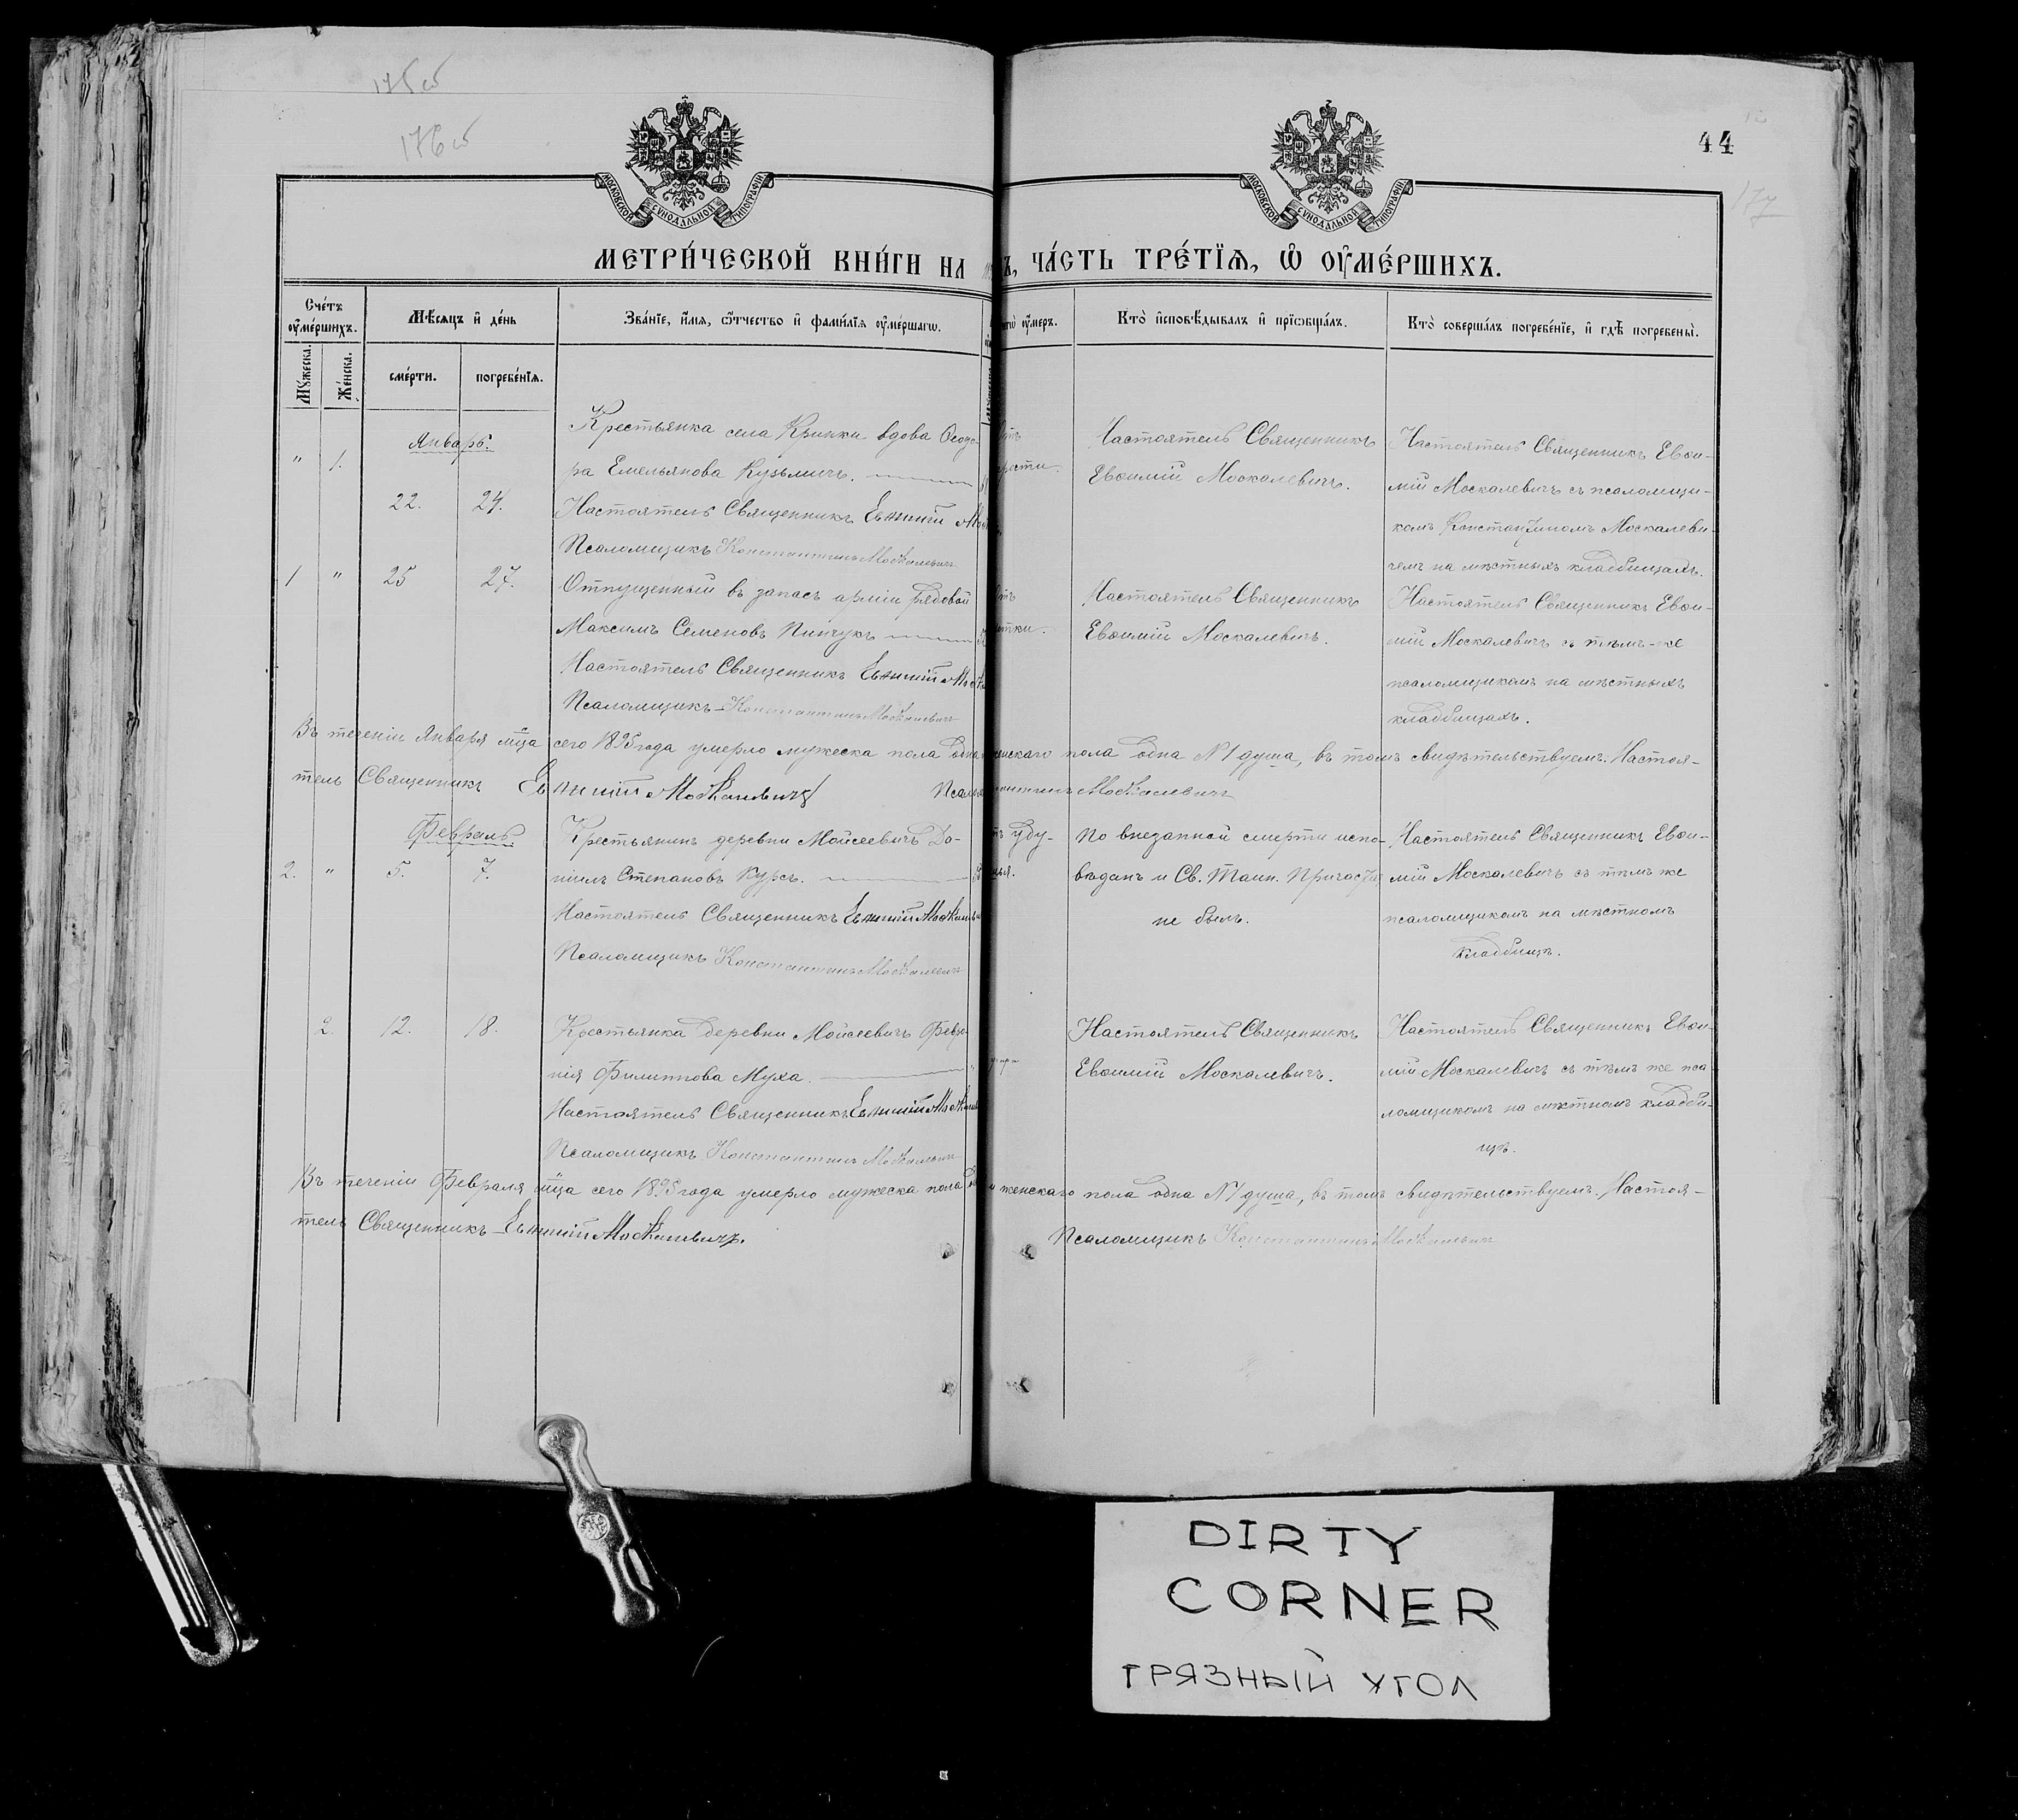 175об
176об
44
177
МОСКОВСКОЙ СѴНОДАЛЬНОЙ ТИПОГРАФІИ
МОСКОВСКОЙ СѴНОДАЛЬНОЙ ТИПОГРАФІИ
МЕТРИ́ЧЕСКОЙ КНИ́ГИ НА
Ъ, ЧА́СТЬ ТРЕ́ТЇѦ, Ѽ ОУ҆МЕ́РШИХЪ.
Сче́тъ оу҆ме́ршихъ.
Мꙋ́жеска.
Же́нска.
Мѣ́сѧцъ и҆ де́нь
сме́рти.
погребе́нїѧ.
Зва́нїе, и҆́мѧ, ѻ҆́тчество и҆ фами́лїѧ оу҆ме́ршагѡ.
оу҆́меръ.
Кто̀ и҆сповѣ́дывалъ и҆ прїѡбща́лъ.
Кто̀ соверша́лъ погребе́нїе, и҆ гдѣ̀ погребены̀.
Январь.
" 1. 22. 24.
Крестьянка села Кринки вдова Ѳеодо-
ра Емельянова Кузьмичъ.
Настоятель Священникъ Евѳимій
Псаломщикъ Константинъ Москалевичъ
Настоятель Священникъ
Евѳимій Москалевичъ.
Настоятель Священникъ Евѳи-
мій Москалевичъ съ псаломщи-
комъ Константиномъ Москалеви-
чемъ на мѣстныхъ кладбищахъ.
1 " 25 27.
Отпущенный въ запасъ арміи рядовой
Максимъ Семеновъ Пинчукъ
Настоятель Священникъ Евѳимій
Псаломщикъ Константинъ Москалевичъ
Настоятель Священникъ
Евѳимій Москалевичъ.
Настоятель Священникъ Евѳи-
мій Москалевичъ съ тѣмъ-же
псаломщикомъ на мѣстныхъ
кладбищахъ.
Въ теченіи Января мц̃а сего 1895 года умерло мужеска пола одна
женскаго пола одна №1 душа, въ томъ свидѣтельствуемъ. Настоя-
тель Священникъ Евѳимій Москалевичъ
Москалевичъ
Февраль.
2. " 5. 7.
Крестьянинъ деревни Мойсеевичъ Да-
ніилъ Степановъ Курсъ.
Настоятель Священникъ Евѳимій Москалевичъ
Псаломщикъ Константинъ Москалевичъ
По внезапной смерти испо-
вѣданъ и Св. Таин. Причас
не былъ.
Настоятель Священникъ Евѳи-
мій Москалевичъ съ тѣмъ же
псаломщикомъ на мѣстномъ
кладбищѣ.
2. 12. 18.
Крестьянка деревни Мойсеевичъ Февро-
нія Филиппова Муха.
Настоятель Священникъ Евѳимій
Псаломщикъ Константинъ Москалевичъ
Настоятель Священникъ
Евѳимій Москалевичъ.
Настоятель Священникъ Евѳи-
мій Москалевичъ съ тѣмъ же пса
ломщикомъ на мѣстномъ кладби-
щѣ.
Въ теченіи Февраля мц̃а сего 1895 года умерло мужеска пола
женскаго пола одна №1 душа, въ томъ свидѣтельствуемъ. Настоя-
тель Священникъ Евѳимій Москалевичъ.
Псаломщикъ Константинъ Москалевичъ
DIRTY
CORNER
ГРЯЗНЫЙ УГОЛ